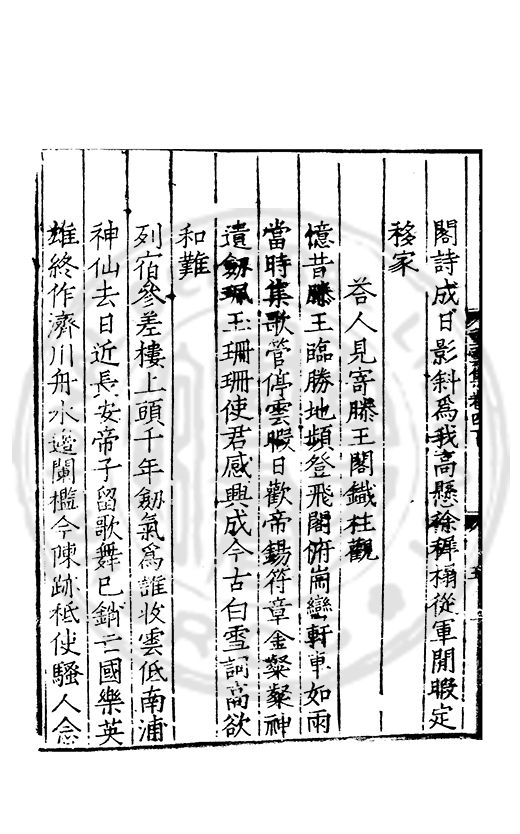 閣詩成日影斜爲我高懸徐穉榻從軍閒暇定
移家
荅人見寄滕王閣鐵柱觀
憶昔滕王臨勝地頻登飛閣俯崗巒軒車如雨
當時集歌管停雲暇日歡帝錫符章金粲粲神
遺劔珮玉珊珊使君感興成今古白雪詞高欲
和難
列宿參差樓上頭千年劔氣爲誰收雲低南浦
神仙去日近長安帝子留歌舞已銷亡國樂英
雄終作濟川舟水邊闌檻今陳跡秪使騷人念